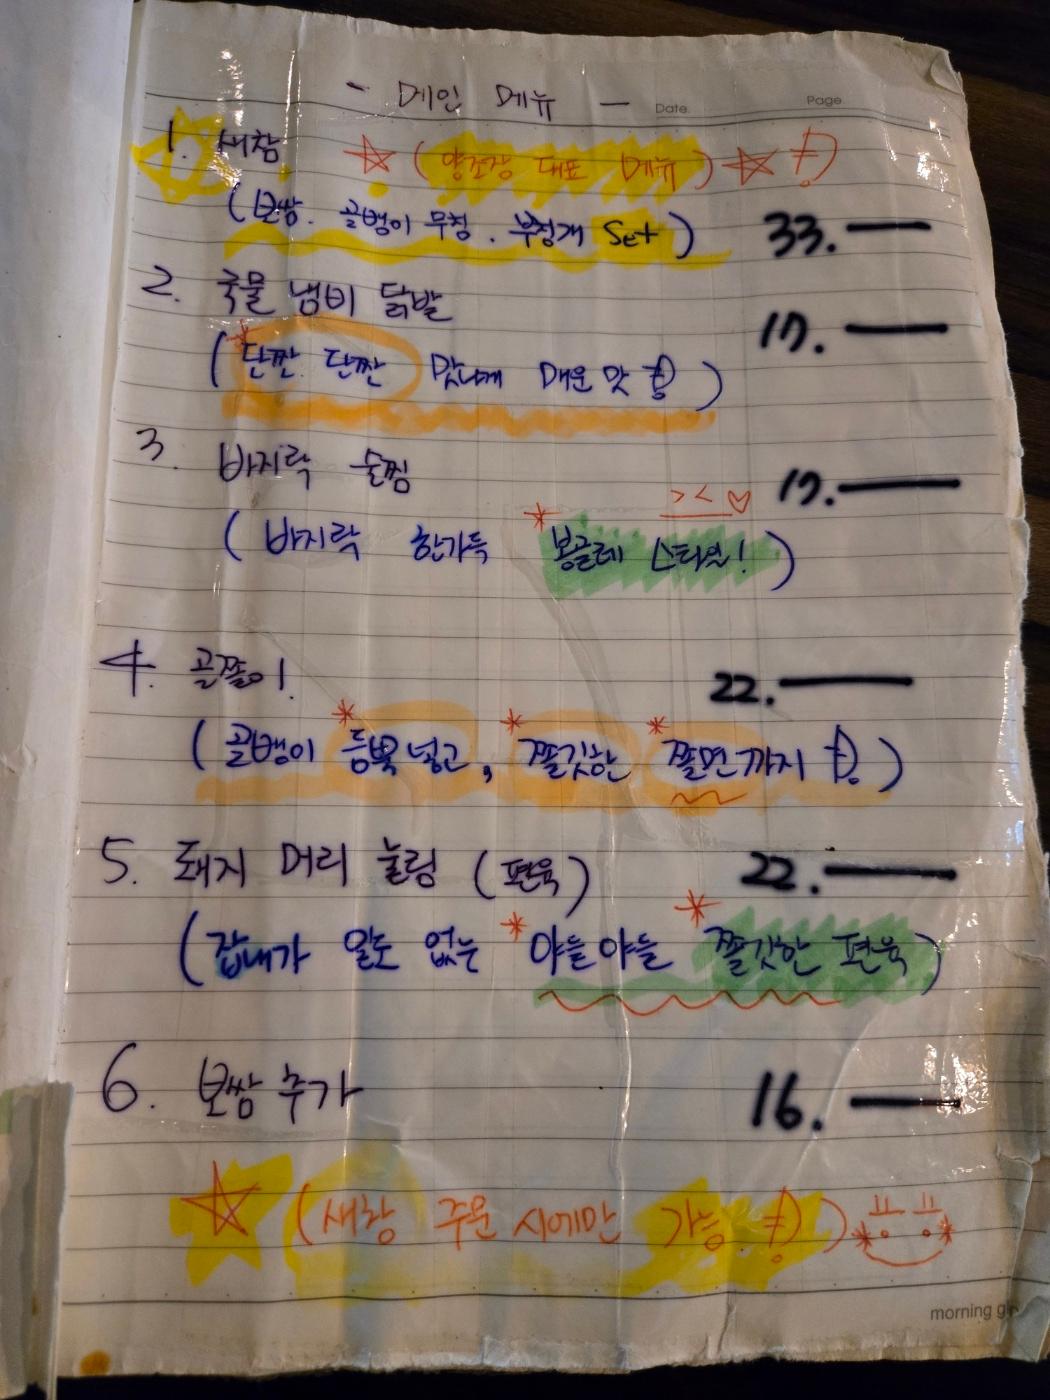 - 메인 메뉴 -
Date. Page
1. 새참 ☆ (양조장 대표 메뉴) ☆
(보쌈. 골뱅이 무침. 부침개 Set) 33.—
2. 국물 냄비 닭발 17.—
(*단짠. 단짠 맛나게 매운 맛)
3. 바지락 술찜 17.—
> < ♡
(바지락 한가득 *봉골레 스타일!)
4. 골쫄이! 22.—
(골뱅이 *듬뿍 넣고, *쫄깃한 *쫄면까지)
5. 돼지 머리 눌림 (편육) 22.—
(잡내가 일도 없는 *야들야들 *쫄깃한 편육)
6. 보쌈 추가 16.—
☆ (새참 주문 시에만 가능)
morning